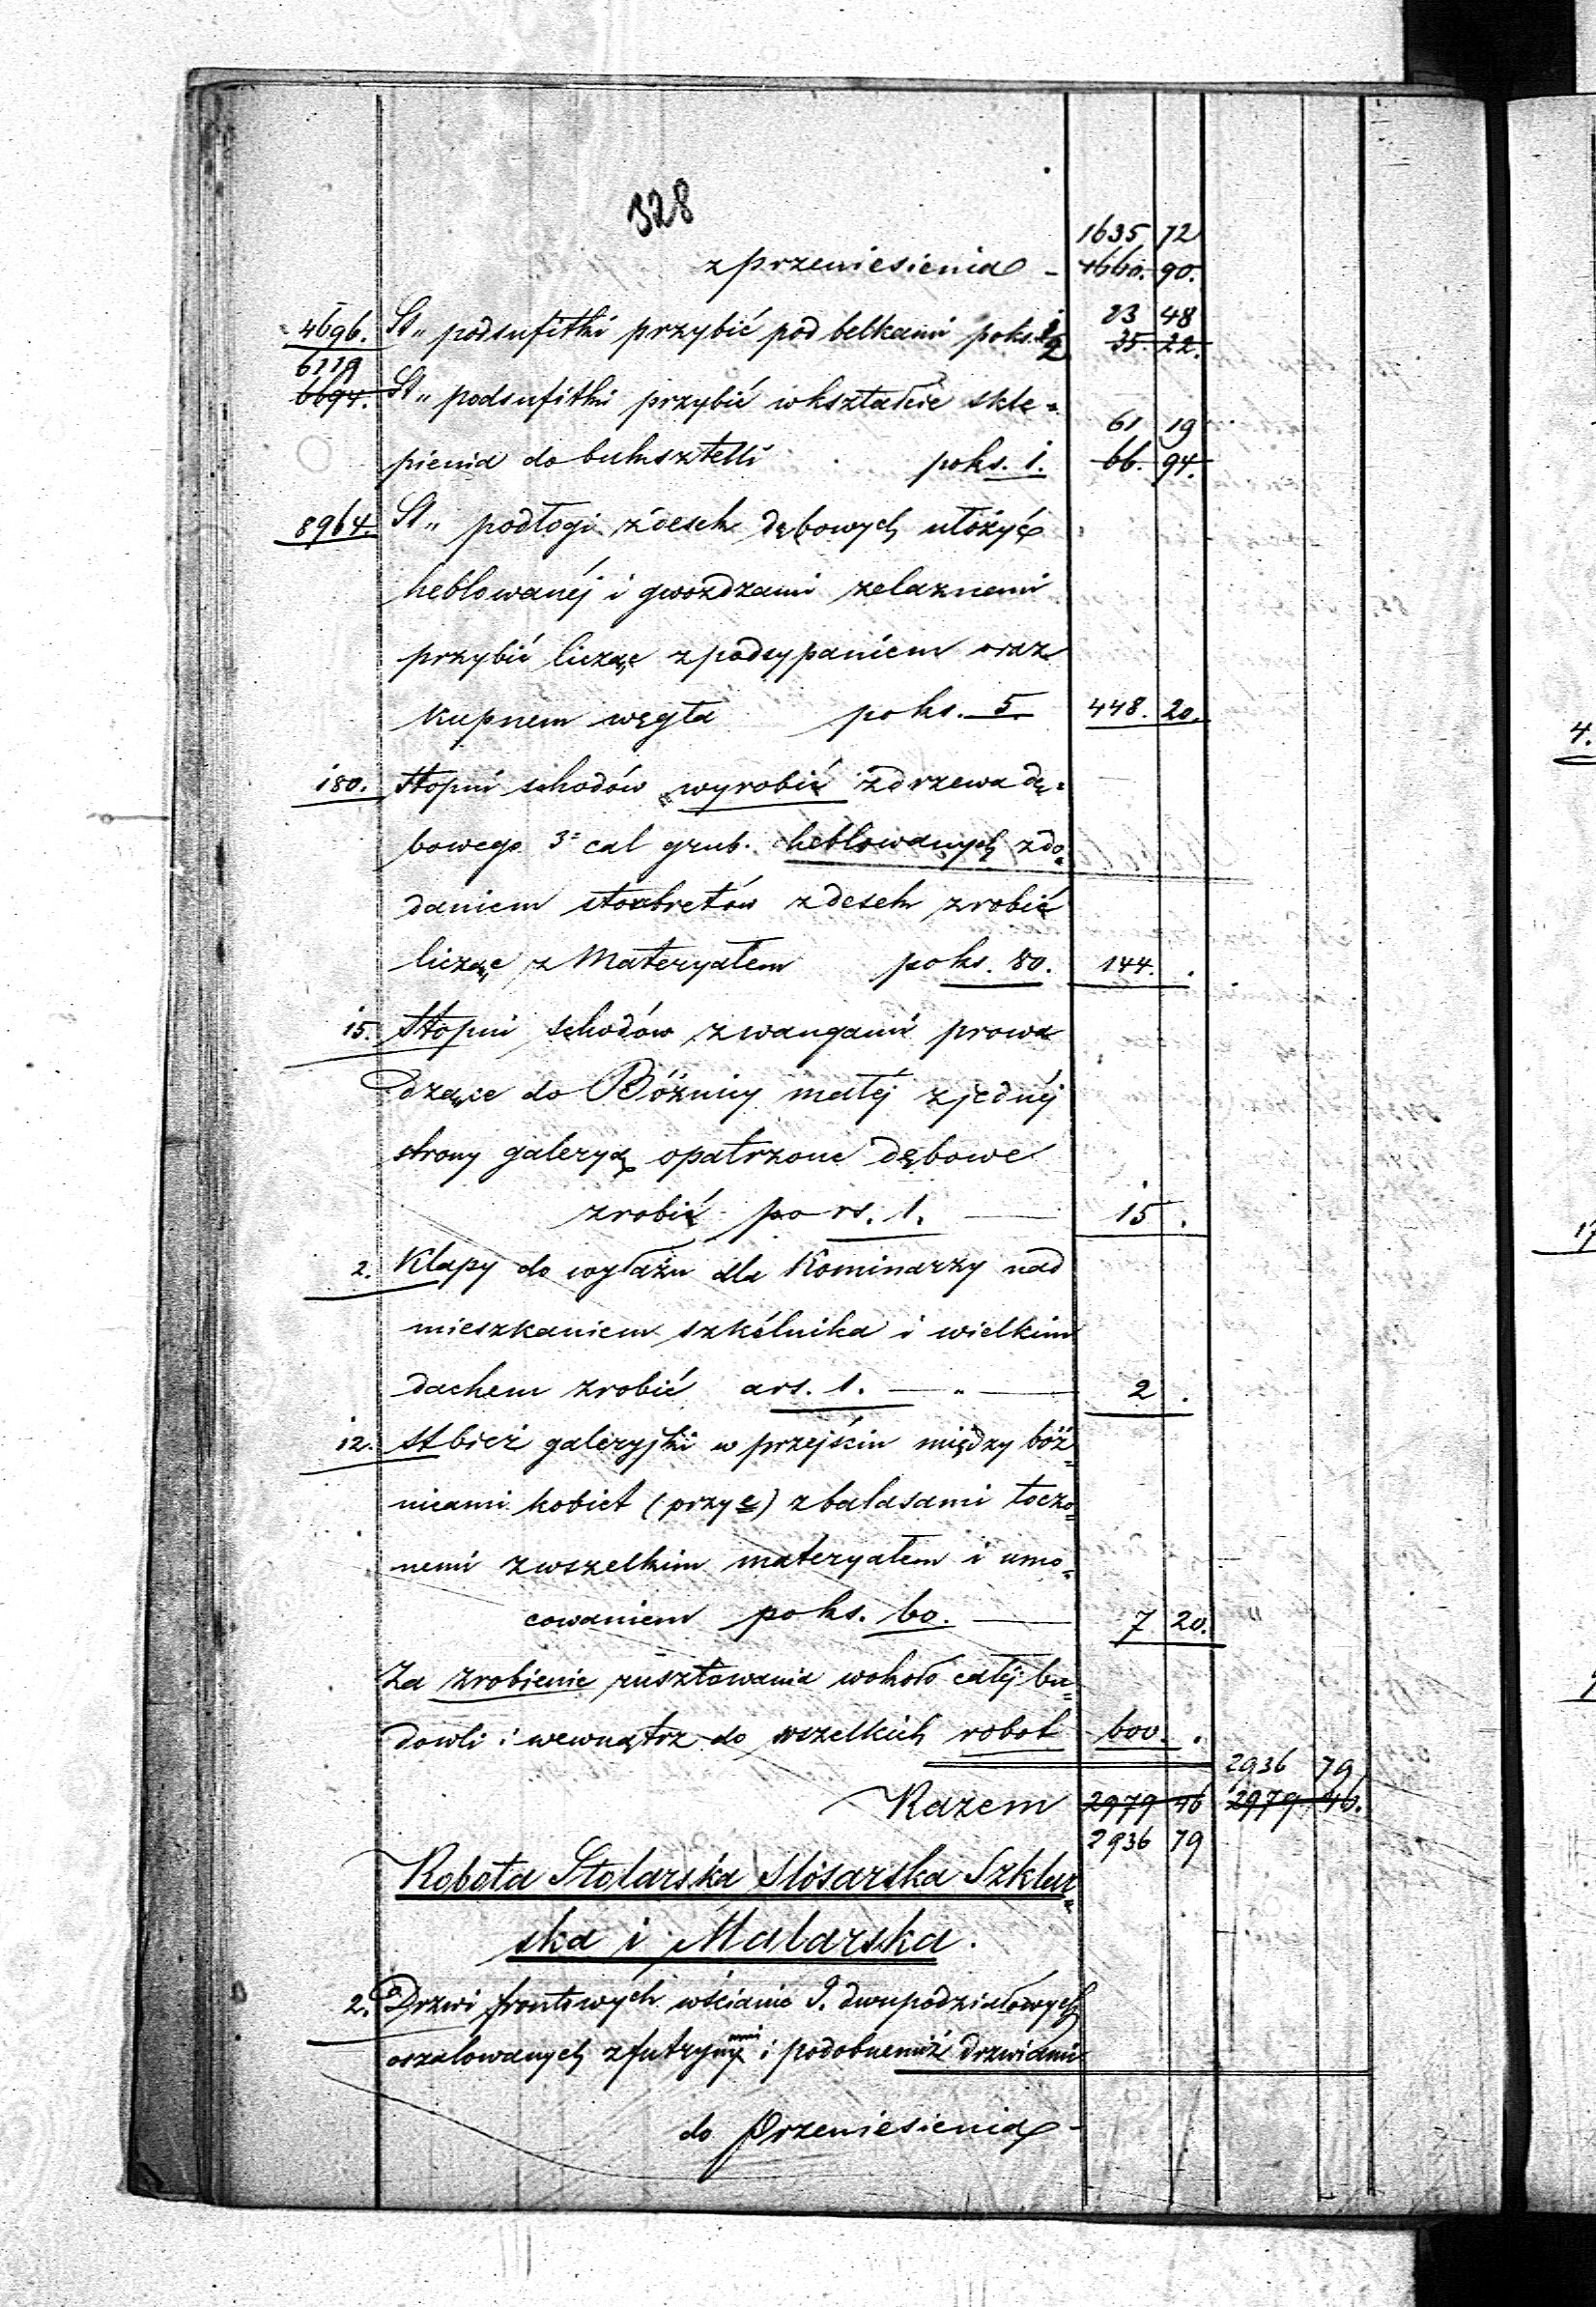 328
1635 72
z przeniesienia - 1660. 90.
23 48
4696. St„ podsufitki przybić pod belkami po ks. ½ 35. 22.
6119
6694. St„ podsufitki przybić w kształcie skle=
61 19
pienia do buksztelli po ks. 1. 66. 94.
8964. St„ podłogi z desek dębowych ułożyć
heblowanéj i gwozdzami zelaznemi
przybić licząc z podsypaniem oraz
kupnem węgła po ks. 5. 448. 20.
180. Stopni schodów wyrobić z drzewa dę=
bowego 3= cal grub. heblowanych z do=
daniem stozbretów z desek zrobić
licząc z Materyałem po ks. 80. 144. .
15. Stopni schodów z wangami prowa
dzące do Bóżnicy małéj z jednéj
strony galeryą opatrzone dębowe
zrobić po rs. 1. — 15 .
2. Klapy do wyłazu dla Kominarzy nad
mieszkaniem szkólnika i wielkim
dachem zrobić a rs. 1. — „ — 2 .
12. St bież galeryjki w przejściu między bóż=
nicami kobiet (przy c) z balasami toczo=
nemi z wszelkim materyałem i umo=
cowaniem po ks. 60. — 7 20.
Za zrobienie rusztowania wokoło całéj bu=
dowli i wewnątrz do wszelkich robot 600. .
2936 79
Razem 2979 46 2979 46.
2936 79
Robota Stolarska Slósarska Szklar=
ska i Malarska.
2. Drzwi frontowych w ścianie J. dwupodziałowych
oszalowanych z futrynami i podobnemiż drzwiami
do Przeniesienia -